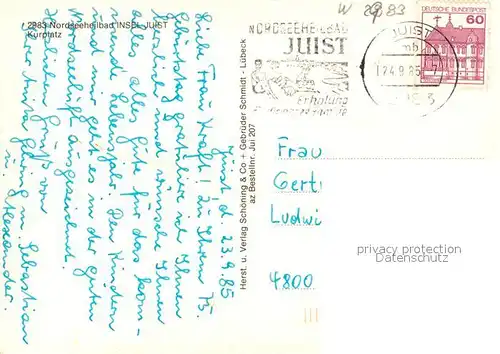 2983 Nordseeheilbad INSEL JUIST
Kurplatz
Juist d. 23.9.85
Liebe Frau Kraft! Zu Ihrem 75.
Geburtstag gratuliere ich Ihnen
herzlich und wünsche Ihnen
alles alles Gute für das kom-
mende Lebensjahr. Den Kindern
und mir geht es in der guten
Nordseeluft ausgezeichnet.
Gruß von
Ihrer und Sebastian
u. Alexander.
Herst. u. Verlag Schöning & Co + Gebrüder Schmidt - Lübeck
az Bestellnr. Jui 207
W 2983
NORDSEEHEILBAD
JUIST
Erholung
JUIST
mb
24.9.85
DEUTSCHE BUNDESPOST
60
Frau
Gert
Ludwi
4800
privacy protection
Datenschutz